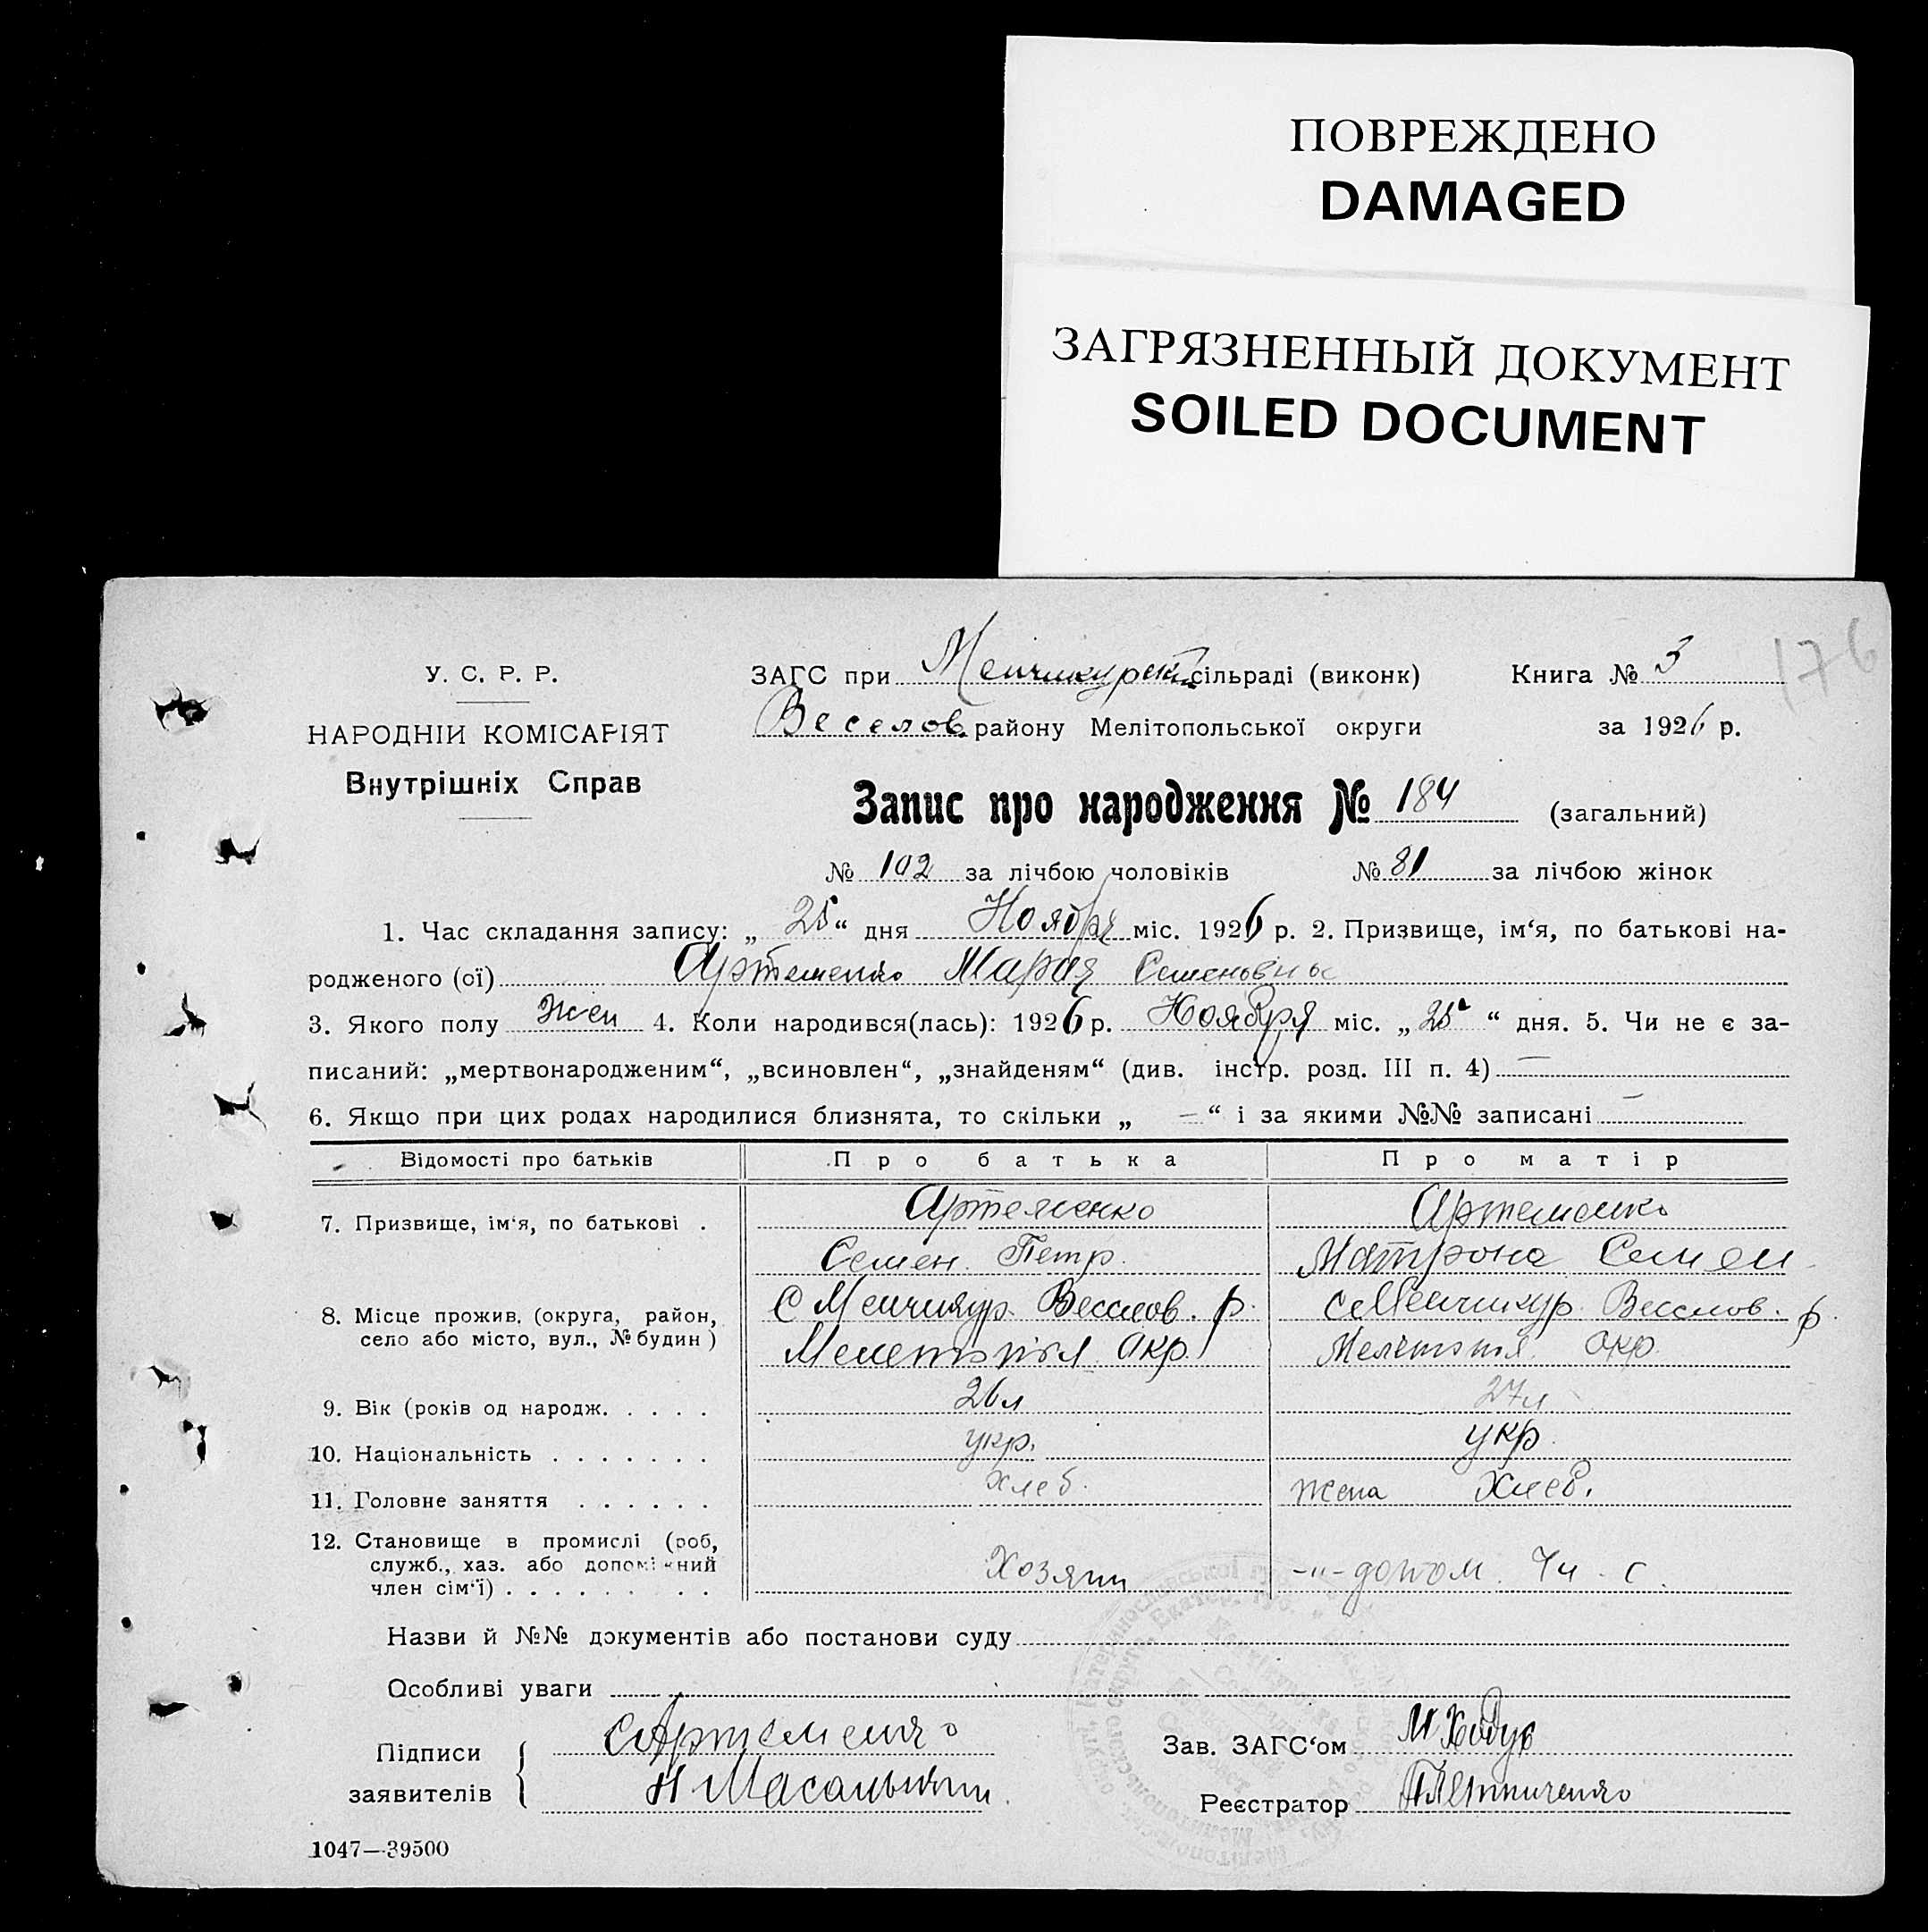 ПОВРЕЖДЕНО
DAMAGED
ЗАГРЯЗНЕННЫЙ ДОКУМЕНТ
SOILED DOCUMENT
176
У. С. Р. Р.
НАРОДНІЙ КОМІСАРІЯТ
Внутрішніх Справ
ЗАГС при Менчикурск сільраді (виконк) Книга № 3
Веселов. району Мелітопольської округи за 1926 р.
Запис про народження № 184 (загальний)
№ 102 за лічбою чоловіків № 81 за лічбою жінок
1. Час складання запису: „ 25 “ дня Ноября міс. 1926 р. 2. Призвище, ім‘я, по батькові на-
родженого (ої) Артеменко Мария Семеновны
3. Якого полу Жен 4. Коли народився(лась): 1926 р. Ноября міс. „ 25 “ дня. 5. Чи не є за-
писаний: „мертвонародженим“, „всиновлен“, „знайденям“ (див. інстр. розд. III п. 4) —
6. Якщо при цих родах народилися близнята, то скільки „ — “ і за якими №№ записані —
Відомості про батьків Про батька Про матір
7. Призвище, ім‘я, по батькові . Артеменко Артеменко
Семен Петр. Матрона Семен
8. Місце прожив. (округа, район, С Менчикур. Веселов. р. с Менчикур. Веселов. р.
село або місто, вул., № будин ) Мелетопол Окр. Мелетопол Окр.
9. Вік (років од народж. . . . . 26 л 27 л
10. Національність . . . . . . . укр. укр.
11. Головне заняття . . . . . . хлеб. жена Хлеб.
12. Становище в промислі (роб,
служб., хаз. або допоміжний Хозяин -"- допом. Чл. с.
член сім‘ї) . . . . . . . . .
Назви й №№ документів або постанови суду
Особливі уваги
Підписи САртеменко Зав. ЗАГС‘ом М Ходус
заявителів Н Масальыкин Реєстратор
1047—39500